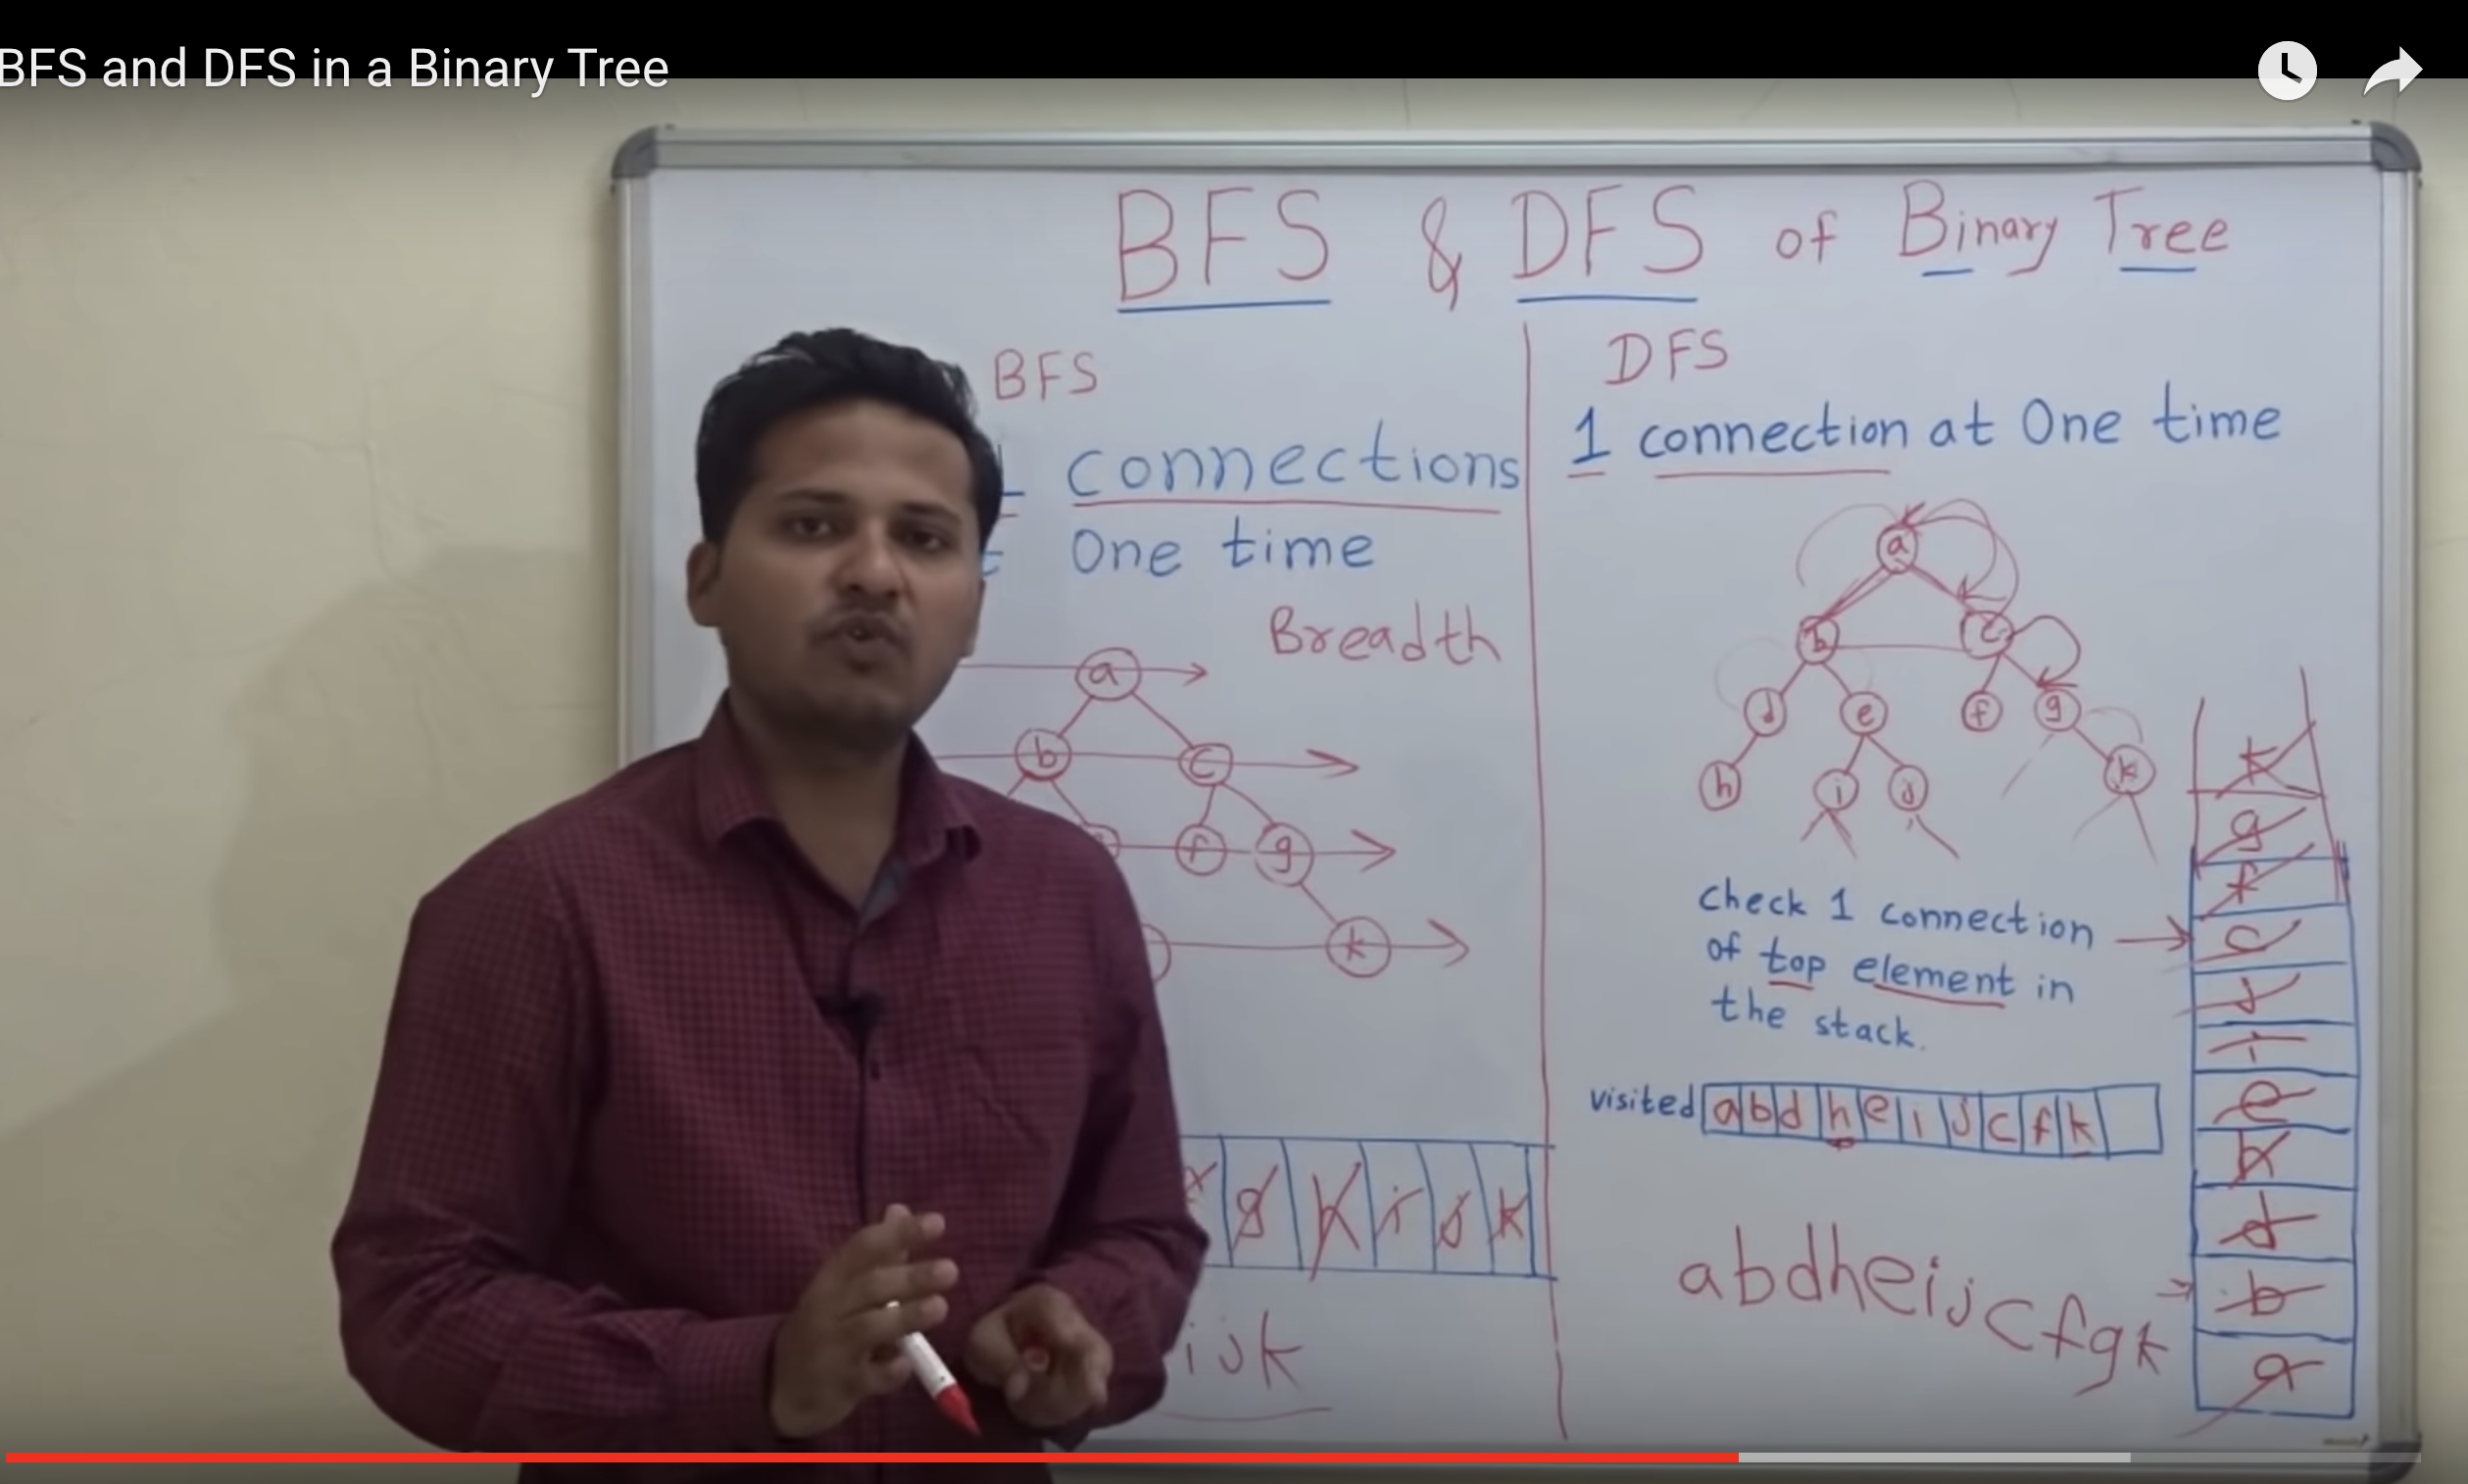 BFS and DFS in a Binary Tree
BFS & DFS of Binary Tree
BFS
connections
One time
Breadth
a
b c
f g
k
g h i j k
ijk
DFS
1 connection at One time
a
b c
d e f g
h i j k
check 1 connection
of top element in
the stack.
visited a b d h e i j c f k
abdheijcfgk
k
g
f
c
j
i
e
h
d
b
a